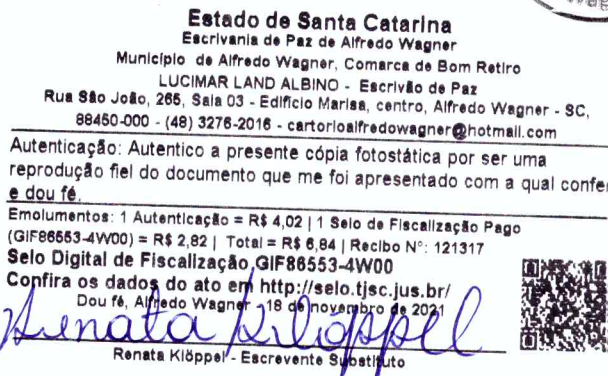 Estado de Santa Catarina
Escrivania de Paz de Alfredo Wagner
Município de Alfredo Wagner, Comarca de Bom Retiro
LUCIMAR LAND ALBINO - Escrivão de Paz
Rua São João, 265, Sala 03 - Edifício Marisa, centro, Alfredo Wagner - SC,
88450-000 - (48) 3276-2016 - cartorioalfredowagner@hotmail.com
Autenticação: Autentico a presente cópia fotostática por ser uma
reprodução fiel do documento que me foi apresentado com a qual confer
e dou fé.
Emolumentos: 1 Autenticação = R$ 4,02 | 1 Selo de Fiscalização Pago
(GIF86553-4W00) = R$ 2,82 | Total = R$ 6,84 | Recibo Nº: 121317
Selo Digital de Fiscalização GIF86553-4W00
Confira os dados do ato em http://selo.tjsc.jus.br/
Dou fé, Alfredo Wagner - 18 de novembro de 2021
Renata Klöppel
Renata Klöppel - Escrevente Substituto